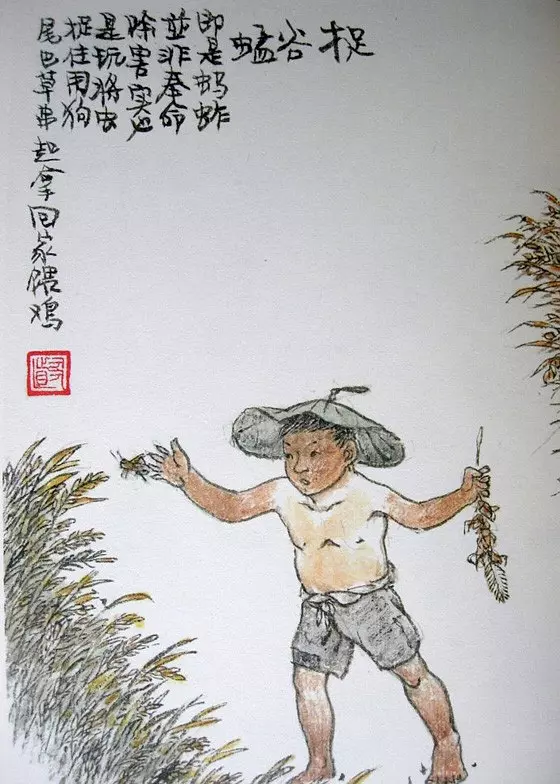 捉谷蜢
即是蚂蚱
並非奉命
除害实也
是玩将虫
捉住用狗
尾巴草串起拿回家喂鸡